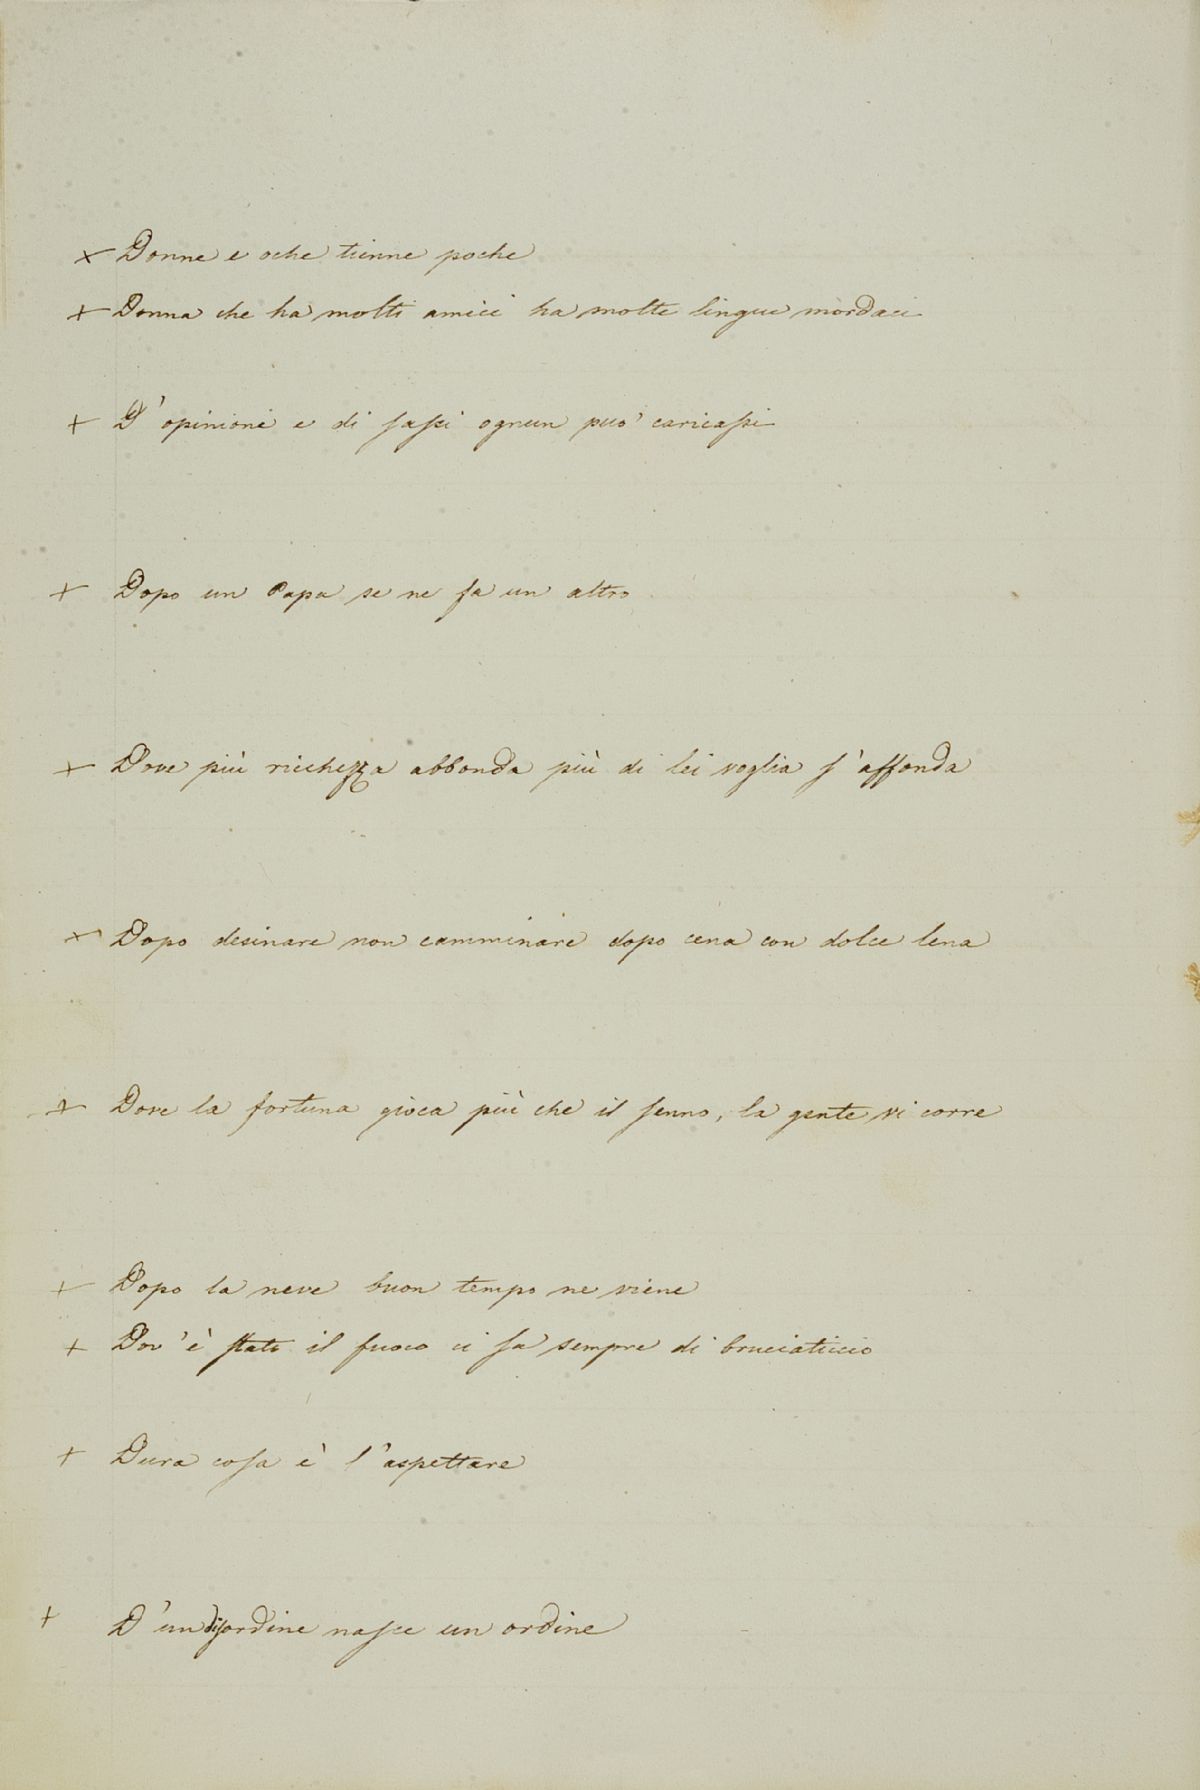 + Donne e oche tienne poche
+ Donna che ha molti amici ha molte lingue mordaci
+ D'opinioni e di sassi ognun può caricassi
+ Dopo un Papa se ne fa un altro
+ Dove più ricchezza abbonda più di lei voglia s'affonda
+ Dopo desinare non camminare dopo cena con dolce lena
+ Dove la fortuna gioca più che il senno, la gente vi corre
+ Dopo la neve buon tempo ne viene
+ Dov'è stato il fuoco ci sa sempre di bruciaticcio
+ Dura cosa è l'aspettare
+ D'un disordine nasce un ordine